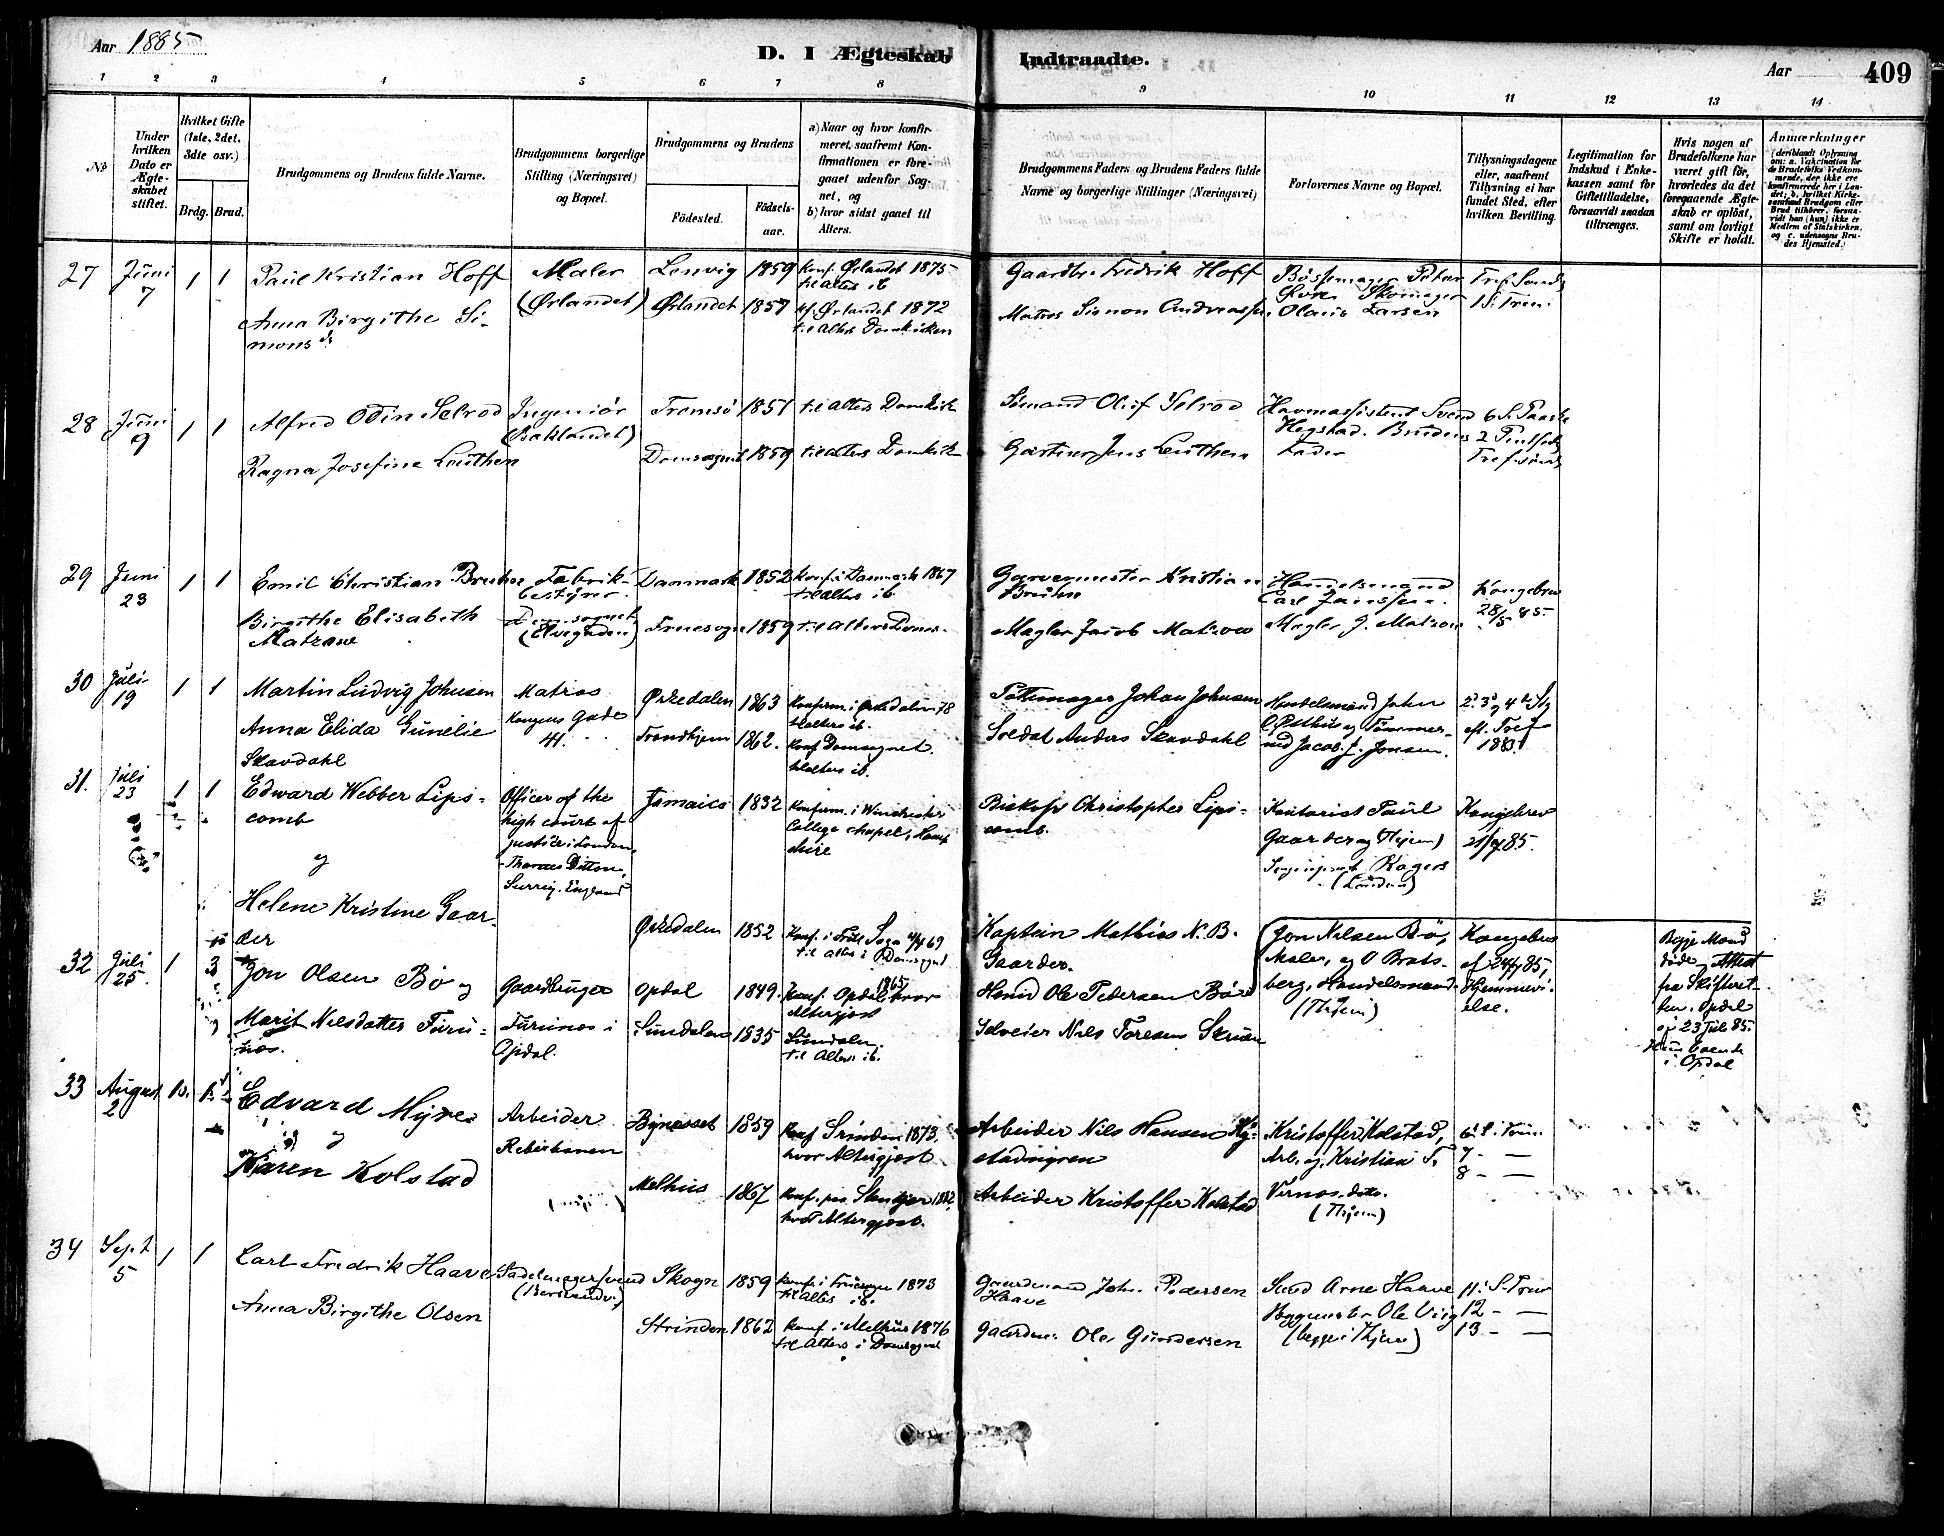 Aar 1885
D. I Ægteskab Indtraadte.
Aar 409
1 2 3 4 5 6 7 8 9 10 11 12 13 14
No
Under hvilken Dato er Ægteskabet stiftet.
Hvilket Gifte (1ste, 2det, 3die osv.)
Brdg. Brud.
Brudgommens og Brudens fulde Navne.
Brudgommens borgerlige Stilling (Næringsvei) og Bopæl.
Brudgommens og Brudens
Fødested.
Fødselsaar.
a) Naar og hvor konfirmeret, saafremt Konfirmationen er foregaaet udenfor Sognet, og
b) hvor sidst gaaet til Alters.
Brudgommens Faders og Brudens Faders fulde Navne og borgerlige Stillinger (Næringsvei)
Forlovernes Navne og Bopæl.
Tillysningsdagene eller, saafremt Tillysning ei har fundet Sted, efter hvilken Bevilling.
Legitimation for Indskud i Enkekassen samt for Giftetilladelse, forsaavidt saadan tiltrænges.
Hvis nogen af Brudefolkene har været gift før, hvorledes da det foregaaende Ægteskab er opløst, samt om lovligt Skifte er holdt.
Anmærkninger
(deriblandt Oplysning om: a. Vakcination for de Brudefolks Vedkommende, der ikke ere konfirmerede her i Landet; b. hvilket Kirkesamfund Brudgom eller Brud tilhører, forsaavidt han (hun) ikke er Medlem af Statskirken, og c. udensogns Brudes Hjemsted.)
27 Juni 7 1 1
Paul Kristian Hoff
Anna Birgithe Simonsd.
Maler
(Ørlandet)
Lenvig 1859
Ørlandet 1857
Konf. Ørlandet 1875
til Alters ib
Kf. Ørlandet 1872
til Alters Domkirken
Gaardbr. Fredrik Hoff
Matros Simon Andreassen
Bøssemager Peter
Skomager
Olaus Larsen
Tref. Sønd.
1 S. Trin.
28 Juni 9 1 1
Alfred Odin Selrod
Ragna Josefine Leuthen
Ingeniør
(Baklandet)
Tromsø 1857
Domsognet 1859
til Alters Domkirk
til Alters Domkirk
Olof Selrod
Gartner Jens Leuthen
Havnassistent Svend
Hegstad. Brudens
Fader
6 S. Paaske
2 Pintsed.
Tref. sønd.
29 Juni 23 1 1
Emil Christian Bruhn
Birgithe Elisabeth
Matzow
Fabrik-
bestyrer.
Danmark 1852
Fruesogn 1859
Konf. i Danmark 1867
til Alters ib.
til Alters Doms.
Garvermester Kristian
Bruhn
Mægler Jacob Matzow
Handelsmand
Carl Janssen.
Mægler J. Matzow
Kongebrev
28/5 85.
30 Juli 19 1 1
Martin Ludvig Johnsen
Anna Elida Gunelie
Skavdahl
Matros
Kongens Gade
41.
Ørkedalen 1863
Trondhjem 1862.
Konfirm. i Ørkedalen 78
til alters ib.
Konf Domsognet.
til alters ib.
Pottemager Johan Johnsen
Soldat Anders Skavdahl
Handelsmand John
O. Østhus og Tømmer-
md Jacob J. Jonsen.
2. 3 og 4de S.
eft. Tref
1885
31. Juli 23 1 1
Edward Webber Lips-
comb
og
Helene Kristine Gaar-
der
Officer of the
high court of
justice i London,
Thames Ditton,
Surrey, England
Jamaica 1832
Ørkedalen 1852
Konfirm. i Winchester
College chapel, Hamp
shire
til alters i Domsognet
Biskop Christopher Lips-
comb.
Kaptein Mathias N. B.
Gaarder.
Kontorist Paul
Gaarder og (Thjem)
Rogers
(London)
Kongebrev
21/7 85.
32 Juli 25. 1 3
Jon Olsen Bø og
Marit Nilsdatter Furu-
nos.
Gaardbruger
Furunos i
Opdal.
Opdal 1849.
Sundalen 1835
Konf. Opdal 1865, hvor
Altergjæst
Sundalen.
til Alters ib.
Ole Pedersen Bø
Selveier Nils Toresen
Jon Nilsen Bø,
Maler, og O Brats-
berg, Handelsmand.
(Thjem)
Kongebrev
af 24/7 85,
Hjemmevi-
else.
Begge Mænd
døde, Attest
fra Skifteret-
ten i Opdal
af 23 Juli 85.
i Opdal
33 August 2 1. 1.
Edvard Myre
og
Karen Kolstad
Arbeider
Reberbanen
Bynesset 1859
Melhus 1867
Konf Strinden 1873,
hvor Altergjæst.
Konf. paa 1882,
hvor Altergjæst.
Arbeider Nils Hansen
Arbeider Kristoffer Kolstad
Kristoffer Kolstad,
Arb. og Kristian S.
Vernos. dito.
(Thjem)
6. S. Trin.
7 - —
8 - —
34 Sept 5 1 1
Carl Fredrik Haave
Anna Birgithe Olsen
Sadelmagersvend
Skogn 1859
Strinden 1862
Konf. i Fruesogn 1873
til Alters ib.
Konf. i Melhus 1876
til Alters i Domsognet
Gaardmand John Pedersen
Haave
Gaardm. Ole Gundersen
Svend Arne Haave
Bygmester Ole Wiig
(begge i Thjem)
11. S. Trin
12 - —
13 - —